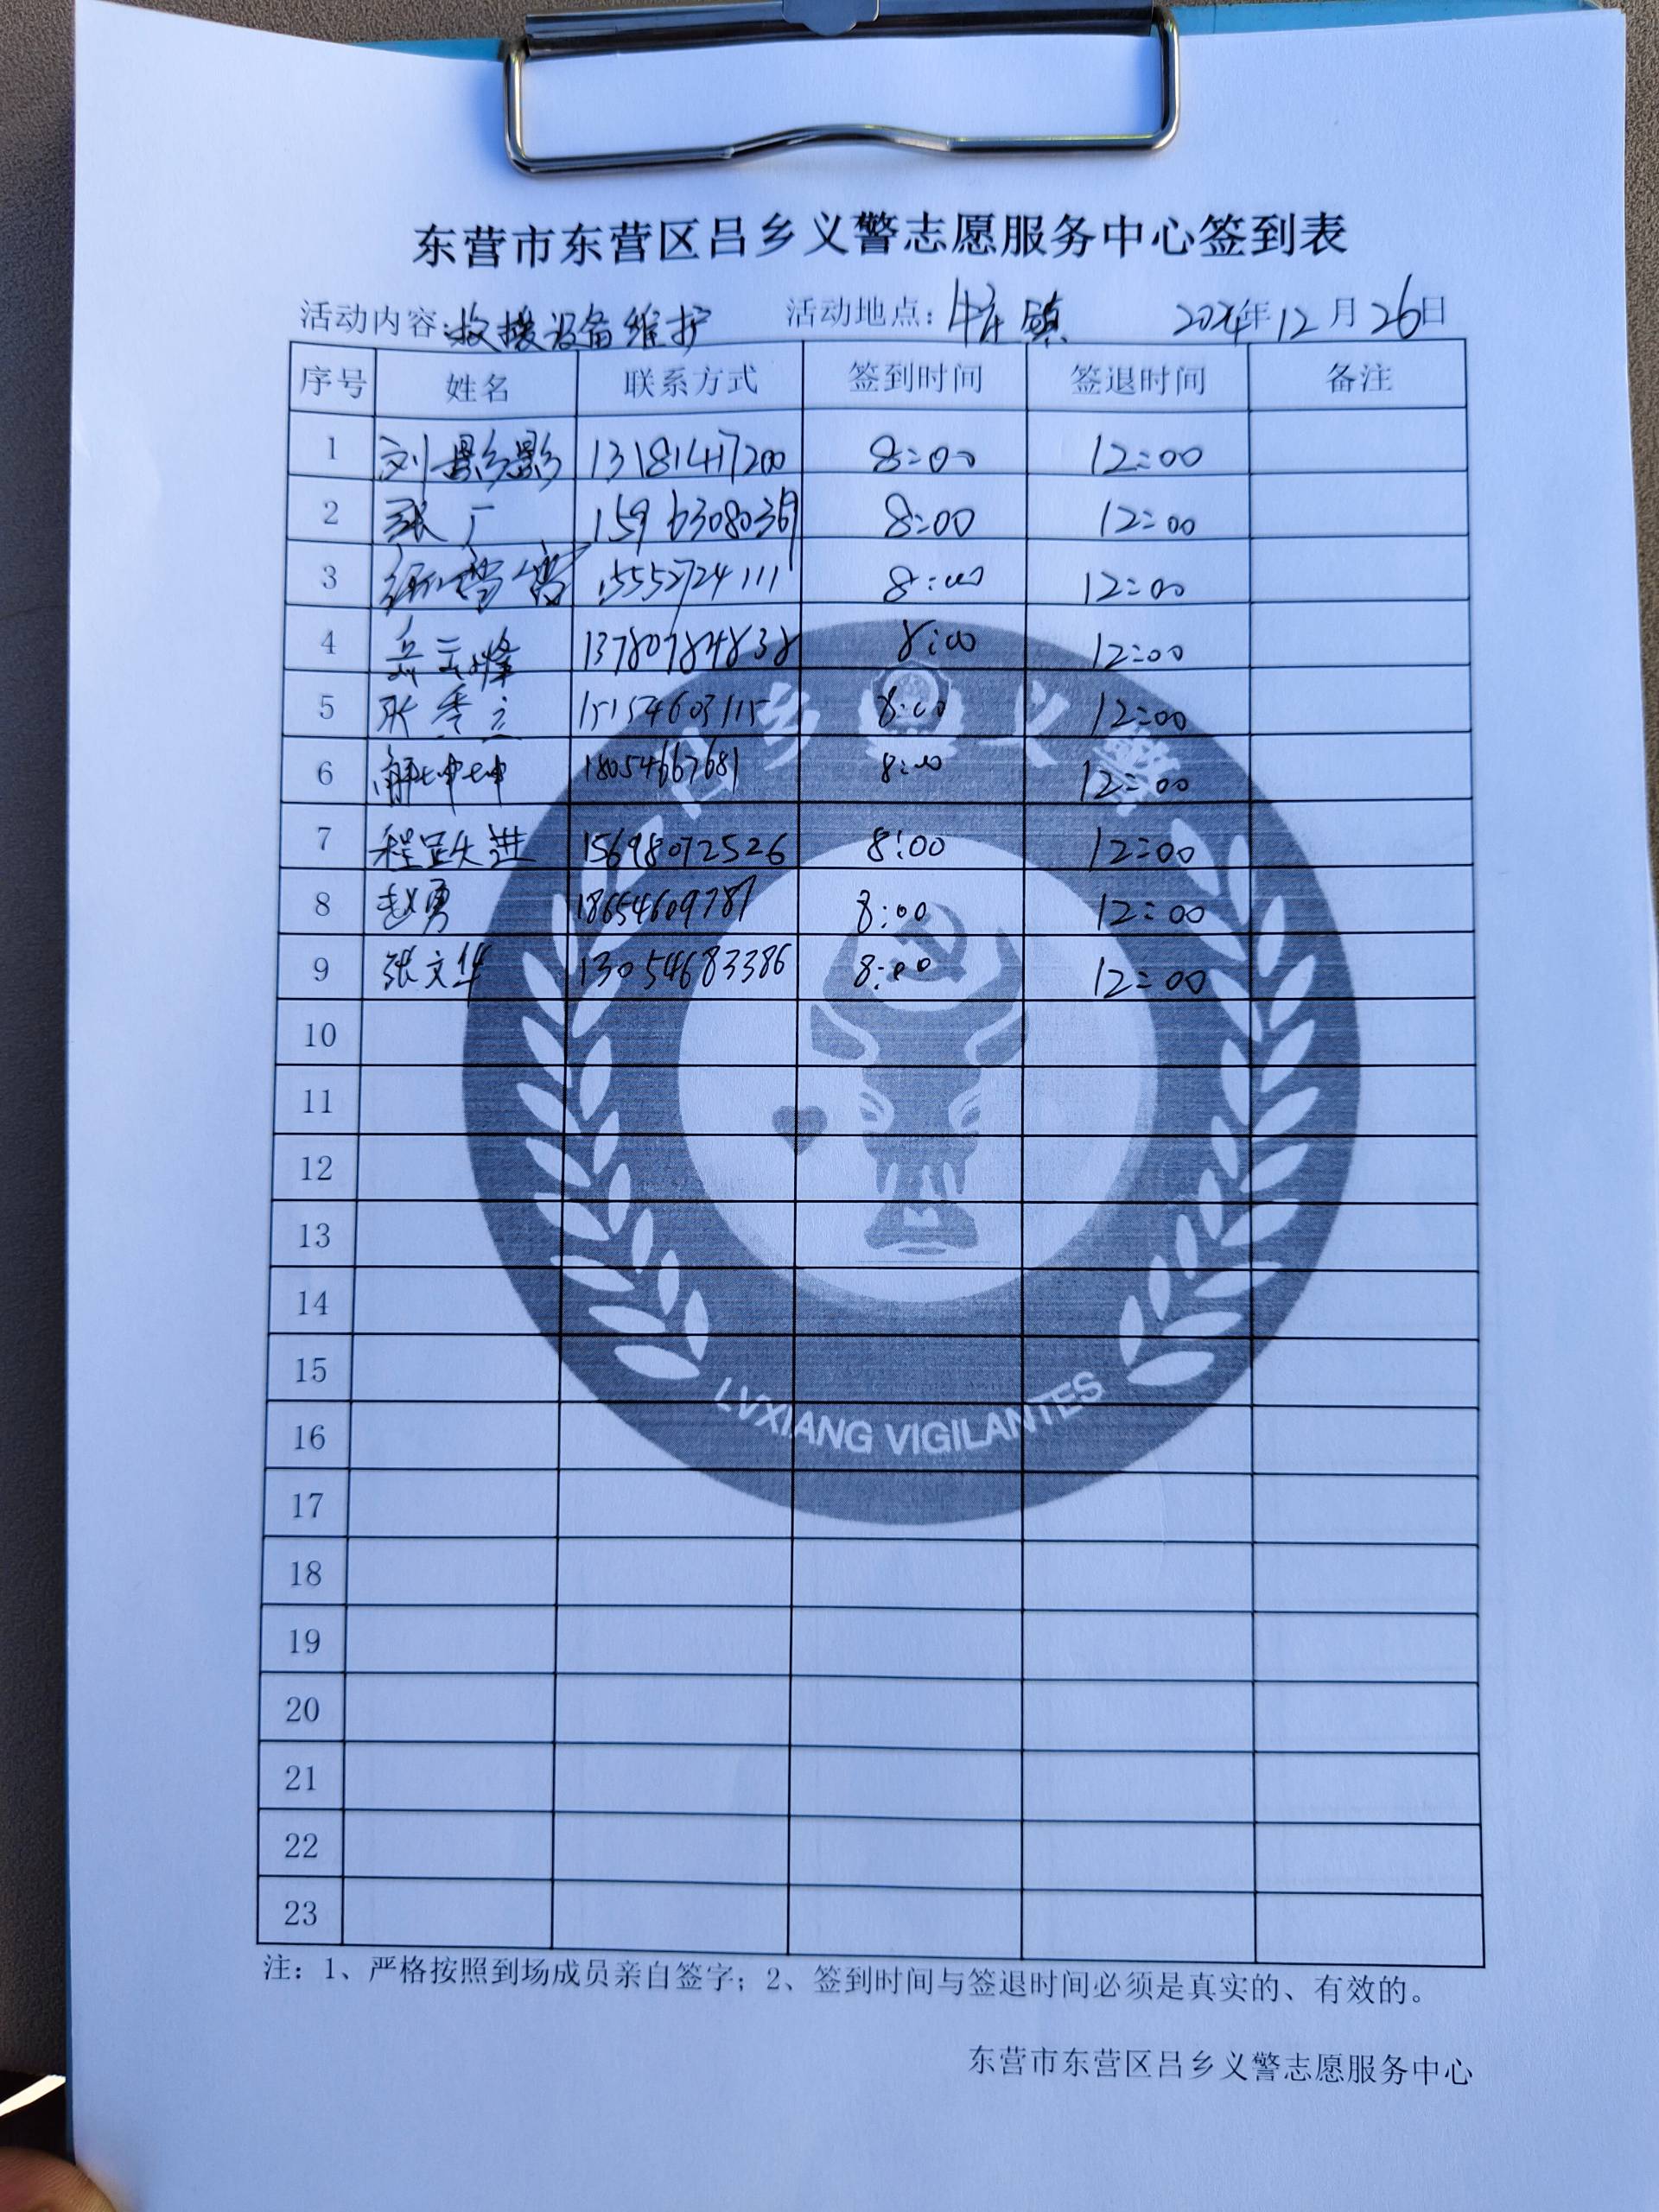 东营市东营区吕乡义警志愿服务中心签到表
活动内容:救援设备维护 活动地点:牛庄镇 2024年12月26日
序号 姓名 联系方式 签到时间 签退时间 备注
1 刘影影 13181417200 8:00 12:00
2 张广 15963080369 8:00 12:00
3 15552724111 8:00 12:00
4 岳云峰 13780784838 8:00 12:00
5 张秀立 15154603115 8:00 12:00
6 解坤坤 18054667681 8:00 12:00
7 程显进 15698072526 8:00 12:00
8 赵勇 18654609787 8:00 12:00
9 张文华 13054683386 8:00 12:00
10
11
12
13
14
15
16
17
18
19
20
21
22
23
吕乡义警
LVXIANG VIGILANTES
注：1、严格按照到场成员亲自签字；2、签到时间与签退时间必须是真实的、有效的。
东营市东营区吕乡义警志愿服务中心